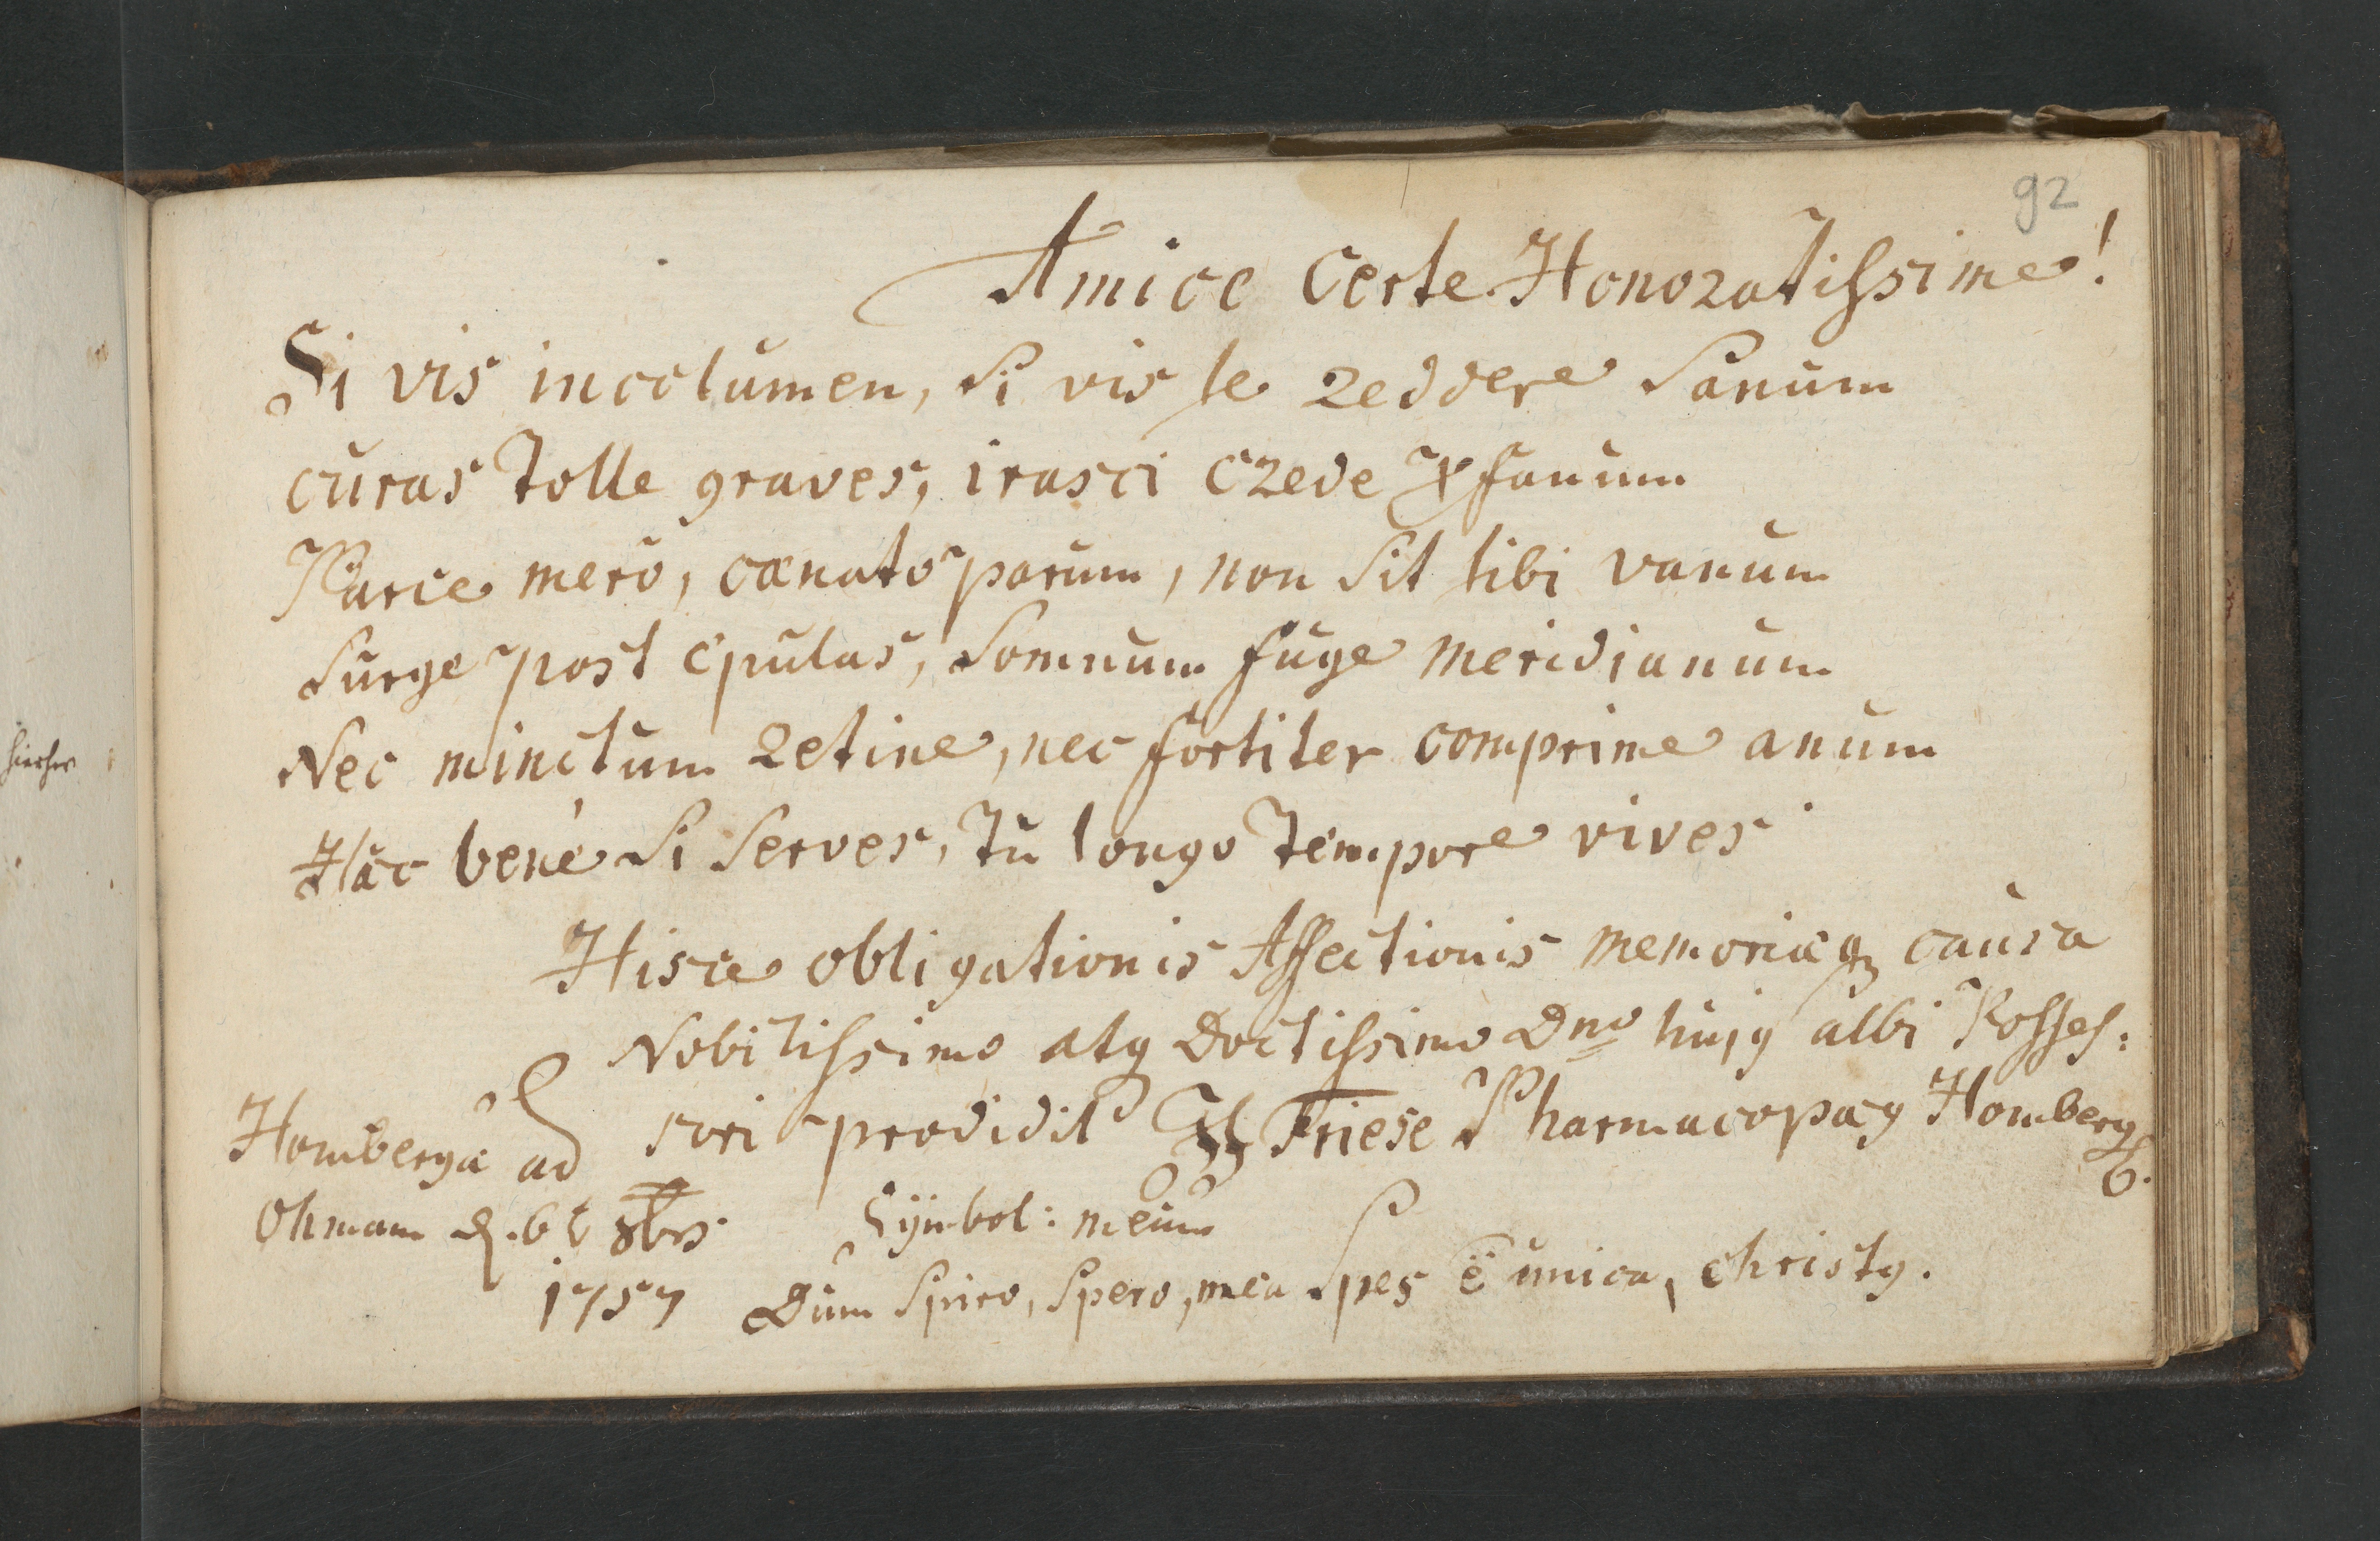 92
Amice Certe Honoratissime!
Si vis incolumen, si vis te reddere Sanum
curas tolle graves, irasci crede profanum
Parce mero, cænato parum, non sit tibi vanum
Surge post epulas, Somnum fuge meridianum
Nec minctum retine, nec fortiter comprime anum
Hæc bene si serves, tu longo tempore vives
Hisce obligationis Affectionis memoriæq causa
Nobilissimo atq Doctissimo Dno hujg albi Posses:
sori prodidit Friese Pharmacopæg Homberg
Hombergæ ad
Ohmam d. 6 t 8br
1757
Symbol: meum
Dum Spiro, Spero, mea Spes ē unica, christg.
hierher